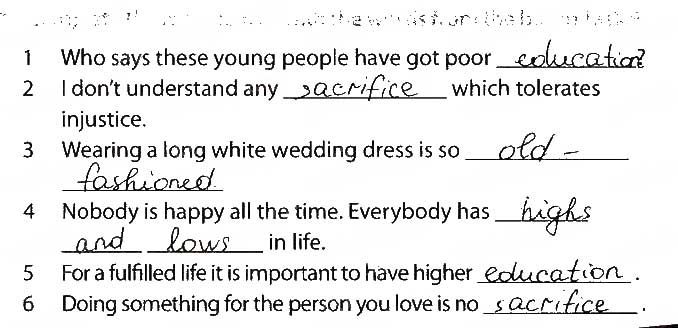 1 Who says these young people have got poor education?
2 I don't understand any sacrifice which tolerates
injustice.
3 Wearing a long white wedding dress is so old -
fashioned.
4 Nobody is happy all the time. Everybody has highs
and lows in life.
5 For a fulfilled life it is important to have higher education.
6 Doing something for the person you love is no sacrifice.